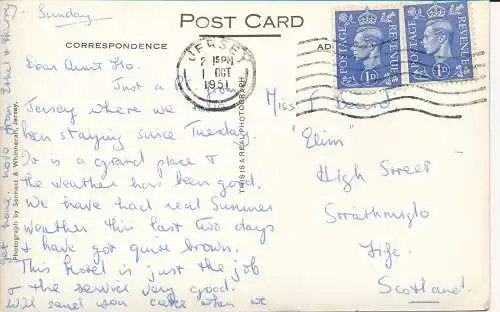 Sunday
POST CARD
CORRESPONDENCE
AD
POSTAGE REVENUE
1D
POSTAGE REVENUE
1D
JERSEY
2 15 PM
1 OCT
1951
Dear Aunt Flo.
Just a from
Jersey where we
been staying since Tuesday.
It is a grand place &
the weather has been good.
We have had real Summer
weather this last two days
& have got quite brown.
This hotel is just the job
& the service very good.
Will send you cake when we
get home. Love from Ethel &
Photograph by Sennett & Whinnerah, Jersey.
THIS IS A REAL PHOTOGRAPH
Miss F
"Elim"
High Street
Strathmiglo
Fife.
Scotland.